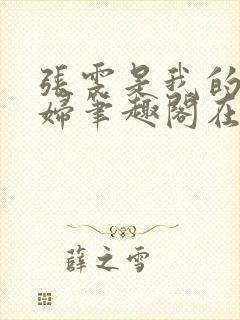 張雲是我的
婦筆趣閣在
薛之雪